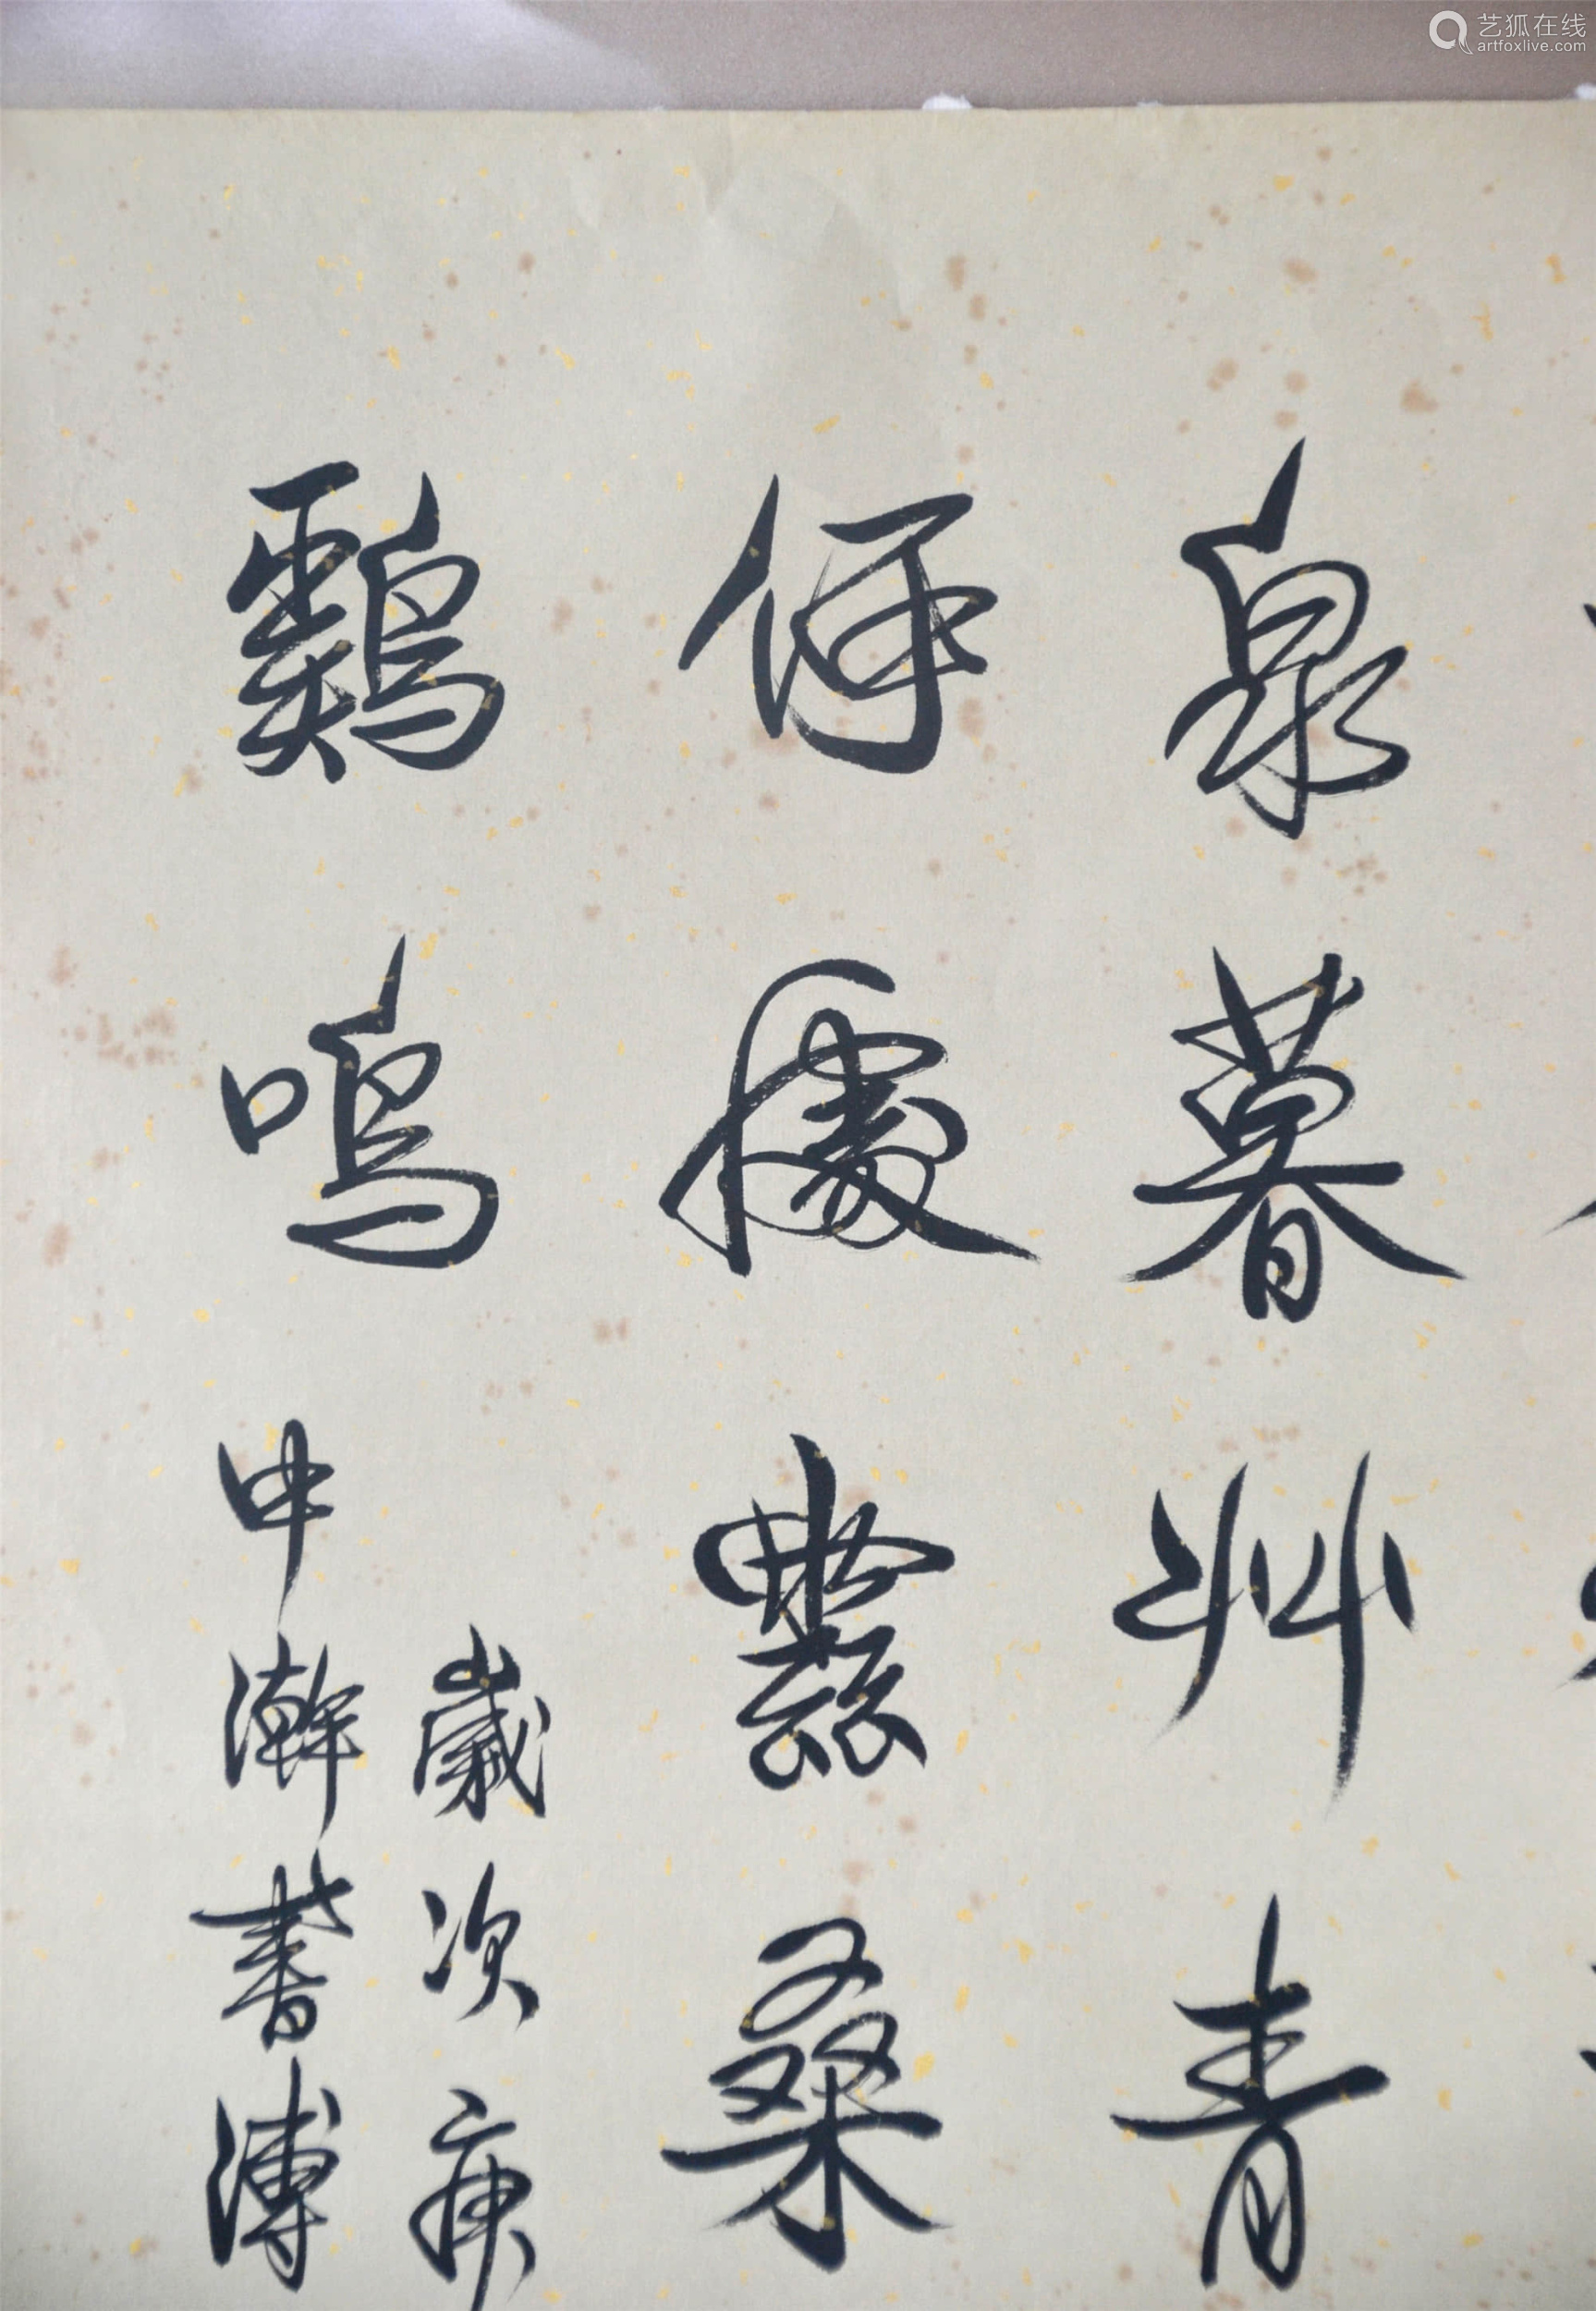 泉暮草青
何處農桑
鷄鳴
歲次庚
申瀚書溥
艺狐在线
artfoxlive.com